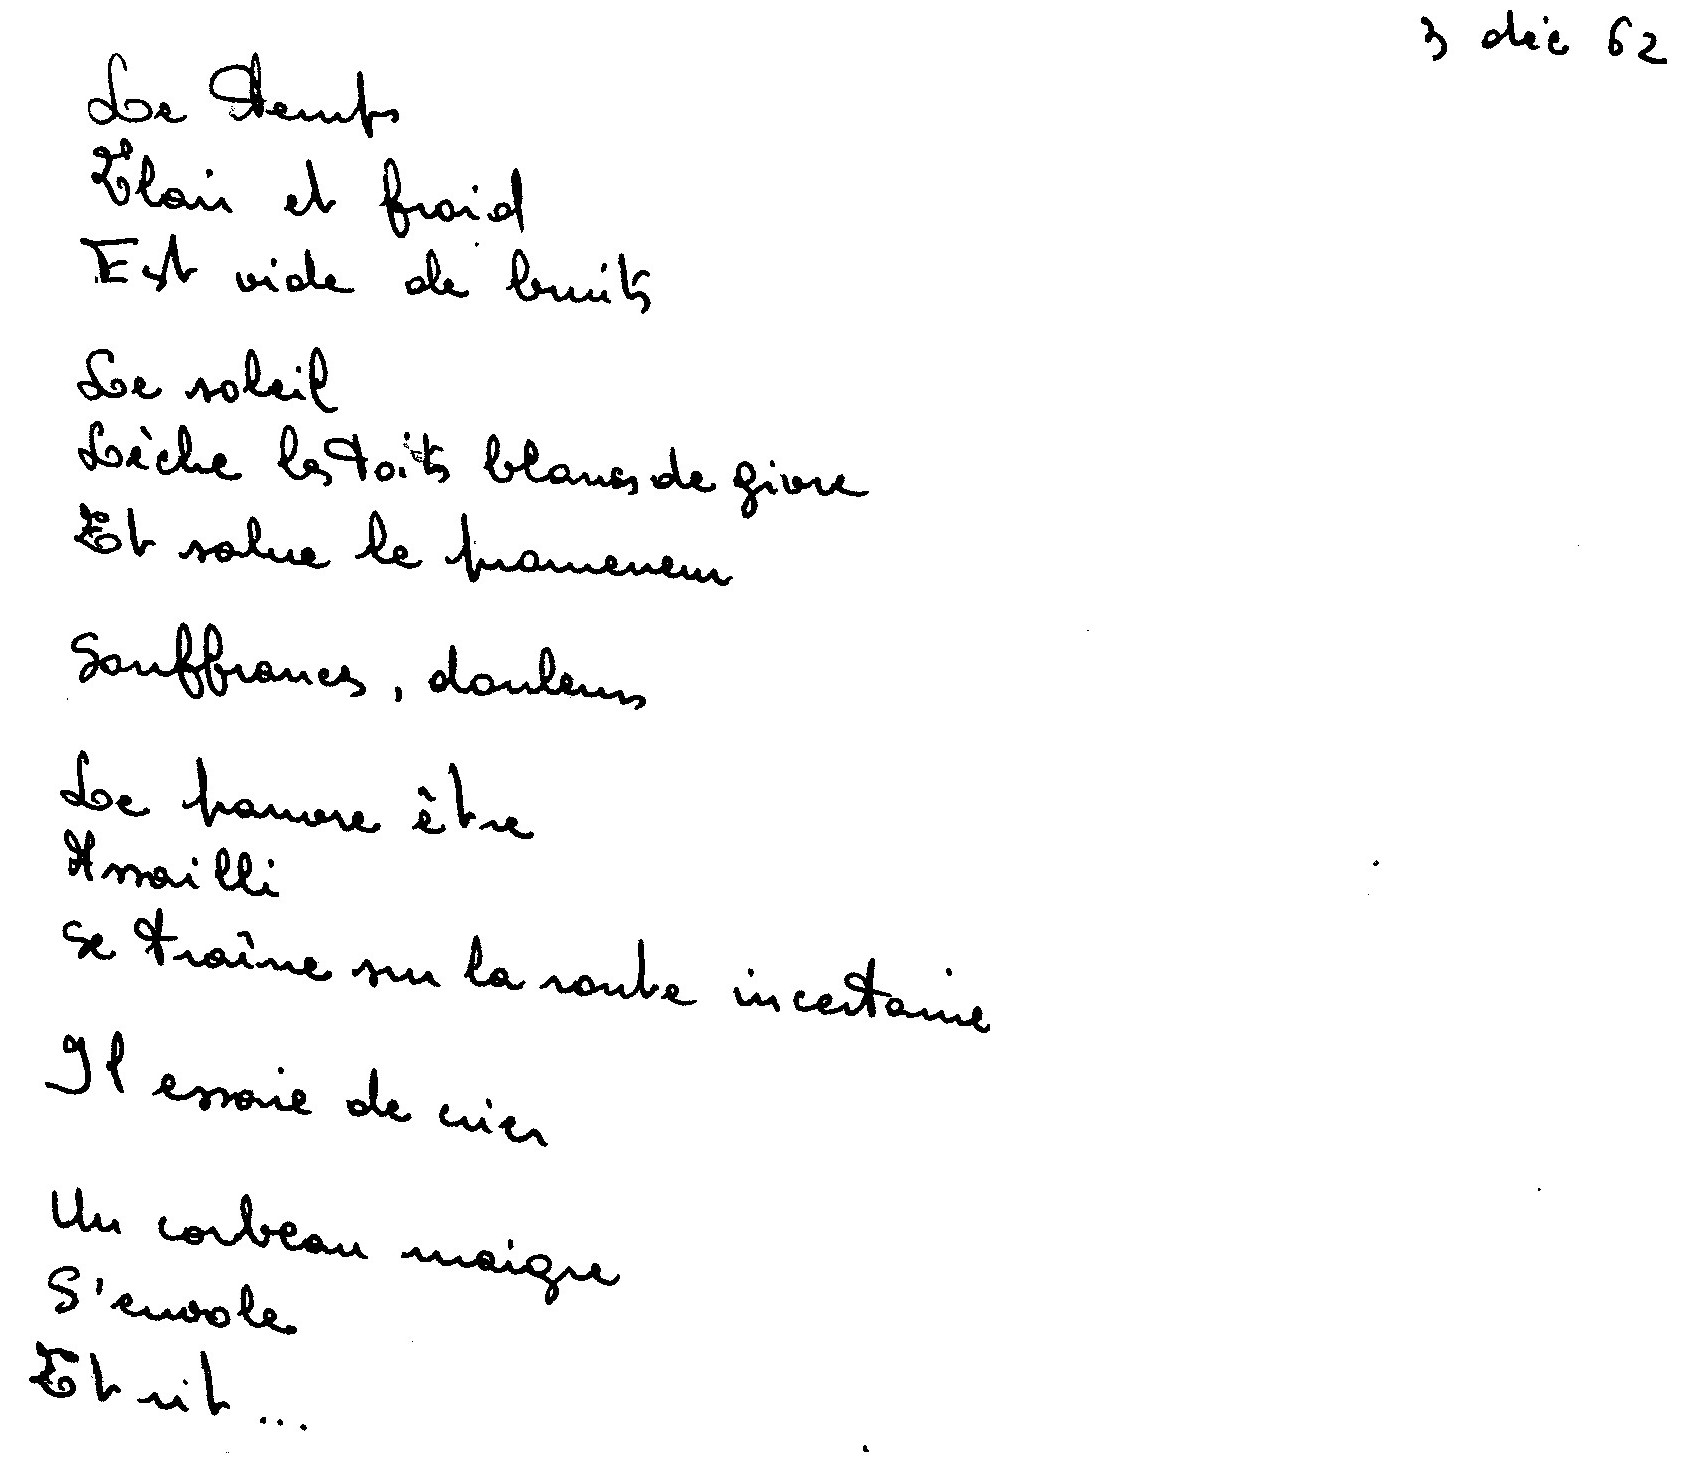 3 déc 62
Le Temps
Clair et froid
Est vide de bruits
Le soleil
Lèche les toits blancs de givre
Et salue le promeneur
Souffrances, douleurs
Le pauvre être
Assailli
Se traîne sur la route incertaine
Il essaie de crier
Un corbeau maigre
S'envole
Et rit ...